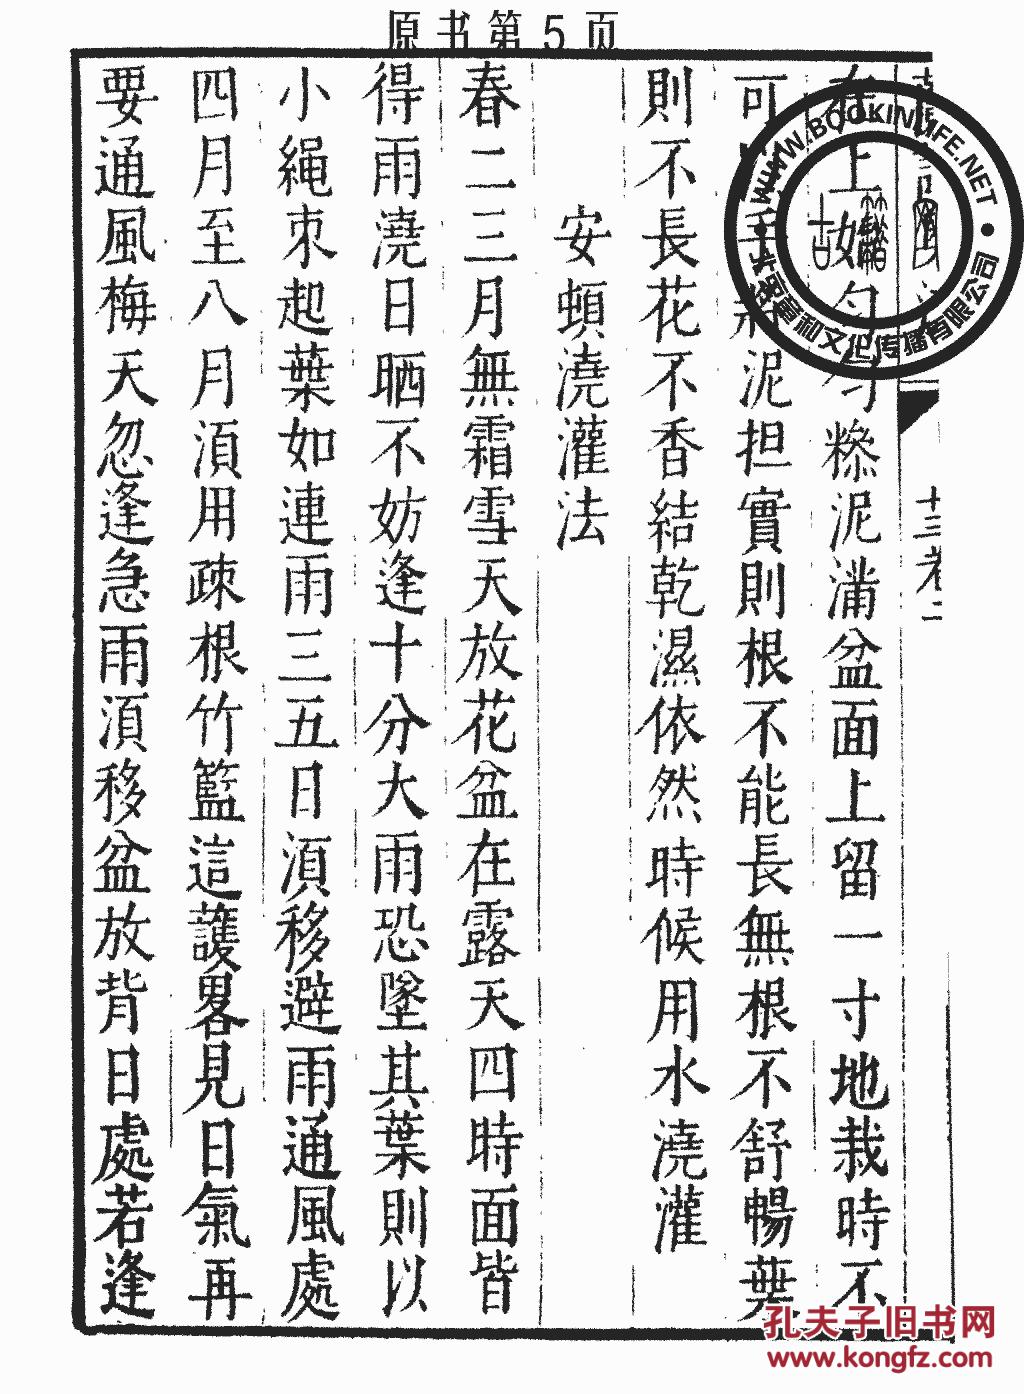 原书第5页
在上
勻糁泥滿盆面上留一寸地栽時不
可
泥担實則根不能長無根不舒暢葉
則不長花不香結乾濕依然時候用水澆灌
安頓澆灌法
春二三月無霜雪天放花盆在露天四時面皆
得雨澆日晒不妨逢十分大雨恐墜其葉則以
小繩束起葉如連雨三五日湏移避雨通風處
四月至八月湏用疎根竹籃這護畧見日氣再
要通風梅天忽逢急雨湏移盆放背日處若逢
十三卷二
WWW.BOOKINLIFE.NET
文化传播有限公司
孔夫子旧书网
www.kongfz.com